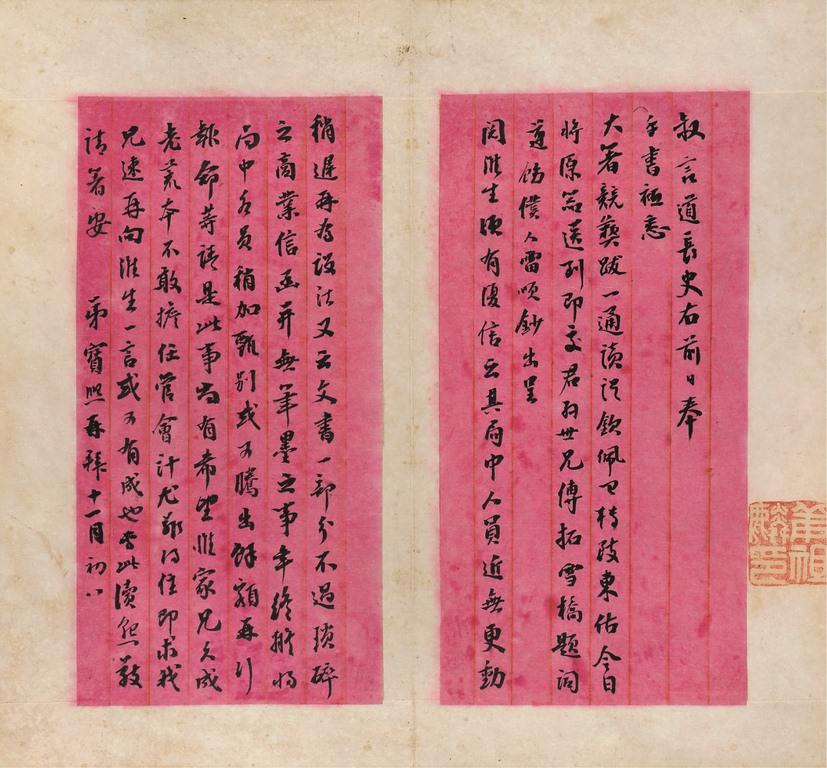 叔言道長史右前日奉
手書祗悉
大著競奭跋一通讀訖欽佩
東估今日
將原器送到即交君羽世兄傳拓雪橋題詞
道
僕人雷頌鈔出呈
閱
生頃有復信云其局中人員近無更動
稍遲再為設法又云文書一部分不過瑣碎
之商業信函并無筆墨之事年終擬將
局中各員稍加甄別或可騰出餘額再行
報命等語是此事尚有希望惟家兄久成
老荒本不敢擔任管會計尤
即求我
兄速再向
生一言或可有成也
此瀆懇敬
請著安
弟寶熙再拜十一月初八